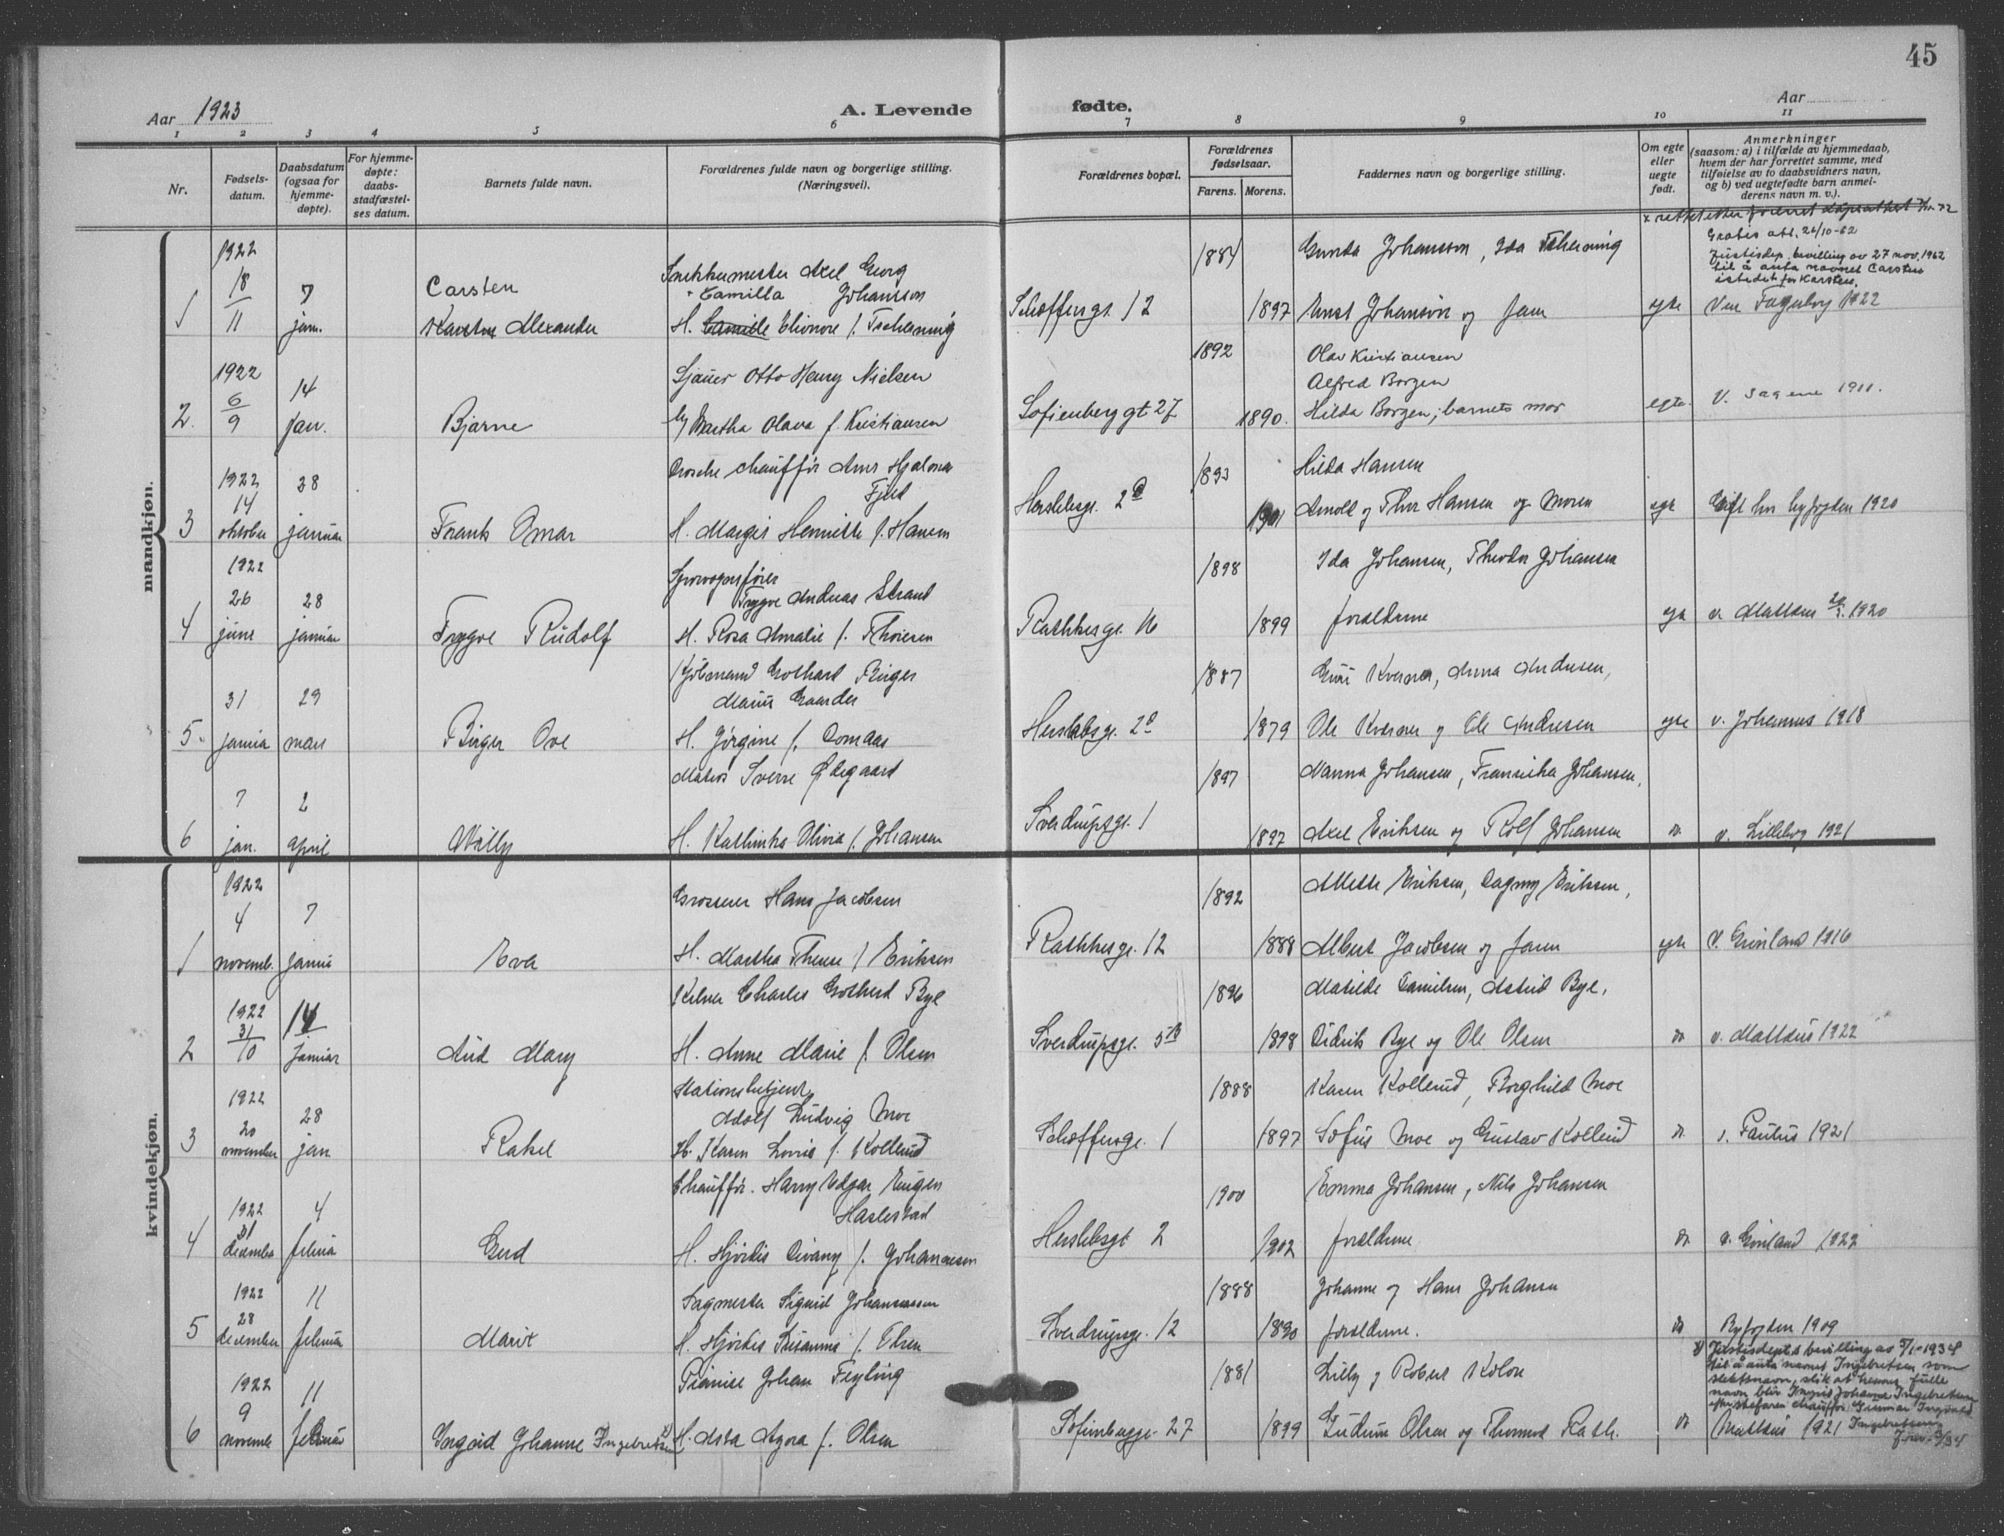 45
Aar 1923
A. Levende fødte.
Aar
1 2 3 4 5 6 7 8 9 10 11
Nr.
Fødsels-
datum.
Daabsdatum
(ogsaa for
hjemme-
døpte).
For hjemme-
døpte:
daabs-
stadfæstel-
ses datum.
Barnets fulde navn.
Forældrenes fulde navn og borgerlige stilling.
(Næringsvei).
Forældrenes bopæl.
Forældrenes
fødselsaar.
Farens. Morens.
Faddernes navn og borgerlige stilling.
Om egte
eller
uegte
født.
Anmerkninger
(saasom: a) i tilfælde av hjemmedaab,
hvem der har forrettet samme, med
tilføielse av to daabsvidners navn,
og b) ved uegtefødte barn anmel-
derens navn m. v.).
mandkjøn.
1922
18
11
1
7
jan.
Carsten
Karsten Alexander
Snekkermester Axel Georg
Camilla Johansson
H. Camille Elionore f. Tscherning
Schæffersgt. 12
1884
1897
Gunda Johansson, Ida Tscherning
Ernst Johansson og faren
egte
Gratis att. 26/10-62
Justisdep. bevilling av 27 nov. 1962
til å anta navnet Carsten
istedet for Karsten.
Vor Fagerborg 1922
2.
1922
6
9
14
jan.
Bjarne
Sjauer Otto Henry Nielsen
Martha Olava f. Kristiansen
Sofienberggt 27
1892
1890.
Olav Kristiansen
Alfred Borgen
Hilda Borgen, barnets mor
egte.
V. Sagene 1911.
3
1922
14
oktober
28
januar
Frank Omar
Drosche chauffør Hjalmar
Fjeld
H. Margit Henriette f. Hansen
Herslebsgt. 2
1893
1901
Hilda Hansen
Arnold og Thor Hansen og Moren
egte
Gift hos byfogden 1920
4
1922
26
juni
28
januar
Trygve Rudolf
Sporvognsfører
Trygve Andreas Strand
H. Rosa Amalie f. Thoresen
Rathkesgt. 16
1898
1899
Ida Johansen, Theodor Johansen
forældrene
egte
v. Mattæus 1920
5.
31
januar
29
mars
Birger Ove
Kjøbmand Gothart Birger
Gaarder
H. Jørgine f. Domaas
Herslebsgt. 2
1887
1879
Guri Kværner, Anna Andresen,
Ole Kværner og Ole Andresen
egte
v. Johannes 1918
6
7
jan.
2
april
Willy
Matros Sverre Ødegaard
H. Kathinka Olivia f. Johansen
Sverdrupsgt. 1
1897
1897
Nanna Johansen, Fransiska Johansen,
Axel Eriksen og Rolf Johansen
v. Lilleborg 1921
kvindekjøn.
1
1922
4
novemb.
7
januar
Eva
Grosserer Hans Jacobsen
H. Martha Therese f. Eriksen
Rathkesgt. 12
1892
1888
Mette Eriksen, Dagny Eriksen,
Albert Jacobsen og faren
egte
V. Grønland 1916
2
1922
31
10
14
januar
Aud Mary
Kelner Charles Gothard Bye
H. Anne Marie f. Olsen
Sverdrupsgt. 5B
1896
1898
Matilde Danielsen, Astrid Bye,
Didrik Bye og Ole Olsen
v. Mattæus 1922
3
1922
20
november
28
jan
Rakel
Stationsbetjent
Adolf Ludvig Moe
H. Karen Lovise f. Kollerud
Schæffersgt. 1
1888
1897
Karen Kollerud, Borghild Moe
Sofus Moe og Gustav Kollerud
v. Paulus 1921
4
1922
31
december
4
februar
Gerd
Chauffør. Harry Edgar Eugen
Haslestad
H. Hjørdis Divany f. Johannesen
Herslebsgt 2
1900
1902
Emma Johansen, Nils Johansen
forældrene
v. Grønland 1922
5
1922
28
december
11
februar
Marit
Sagmester Sigurd Johannessen
H. Hjørdis Susanne f. Olsen
Sverdrupsgt. 12
1888
1890
Johanne og Hans Johansen
forældrene.
Byfogden 1909
6
1922
9
novemb
11
februar
Ingrid Johanne Ingebretsen
Pianist Johan Feyling
H. Asta Agora f. Olsen
Sofienberggt. 27
1881
1899
Lilly og Robert Kolos
Gudrun Olsen og Thomas Rath.
x) Justisdept.s bevilling av 5/1-1934
til å anta navnet Ingebretsen som
slektsnavn, slik at hennes fulle
navn blir Ingrid Johanne Ingebretsen
efter stefaren chauffør Gunnar Ingvald
Ingebretsen
Mattæus 1921